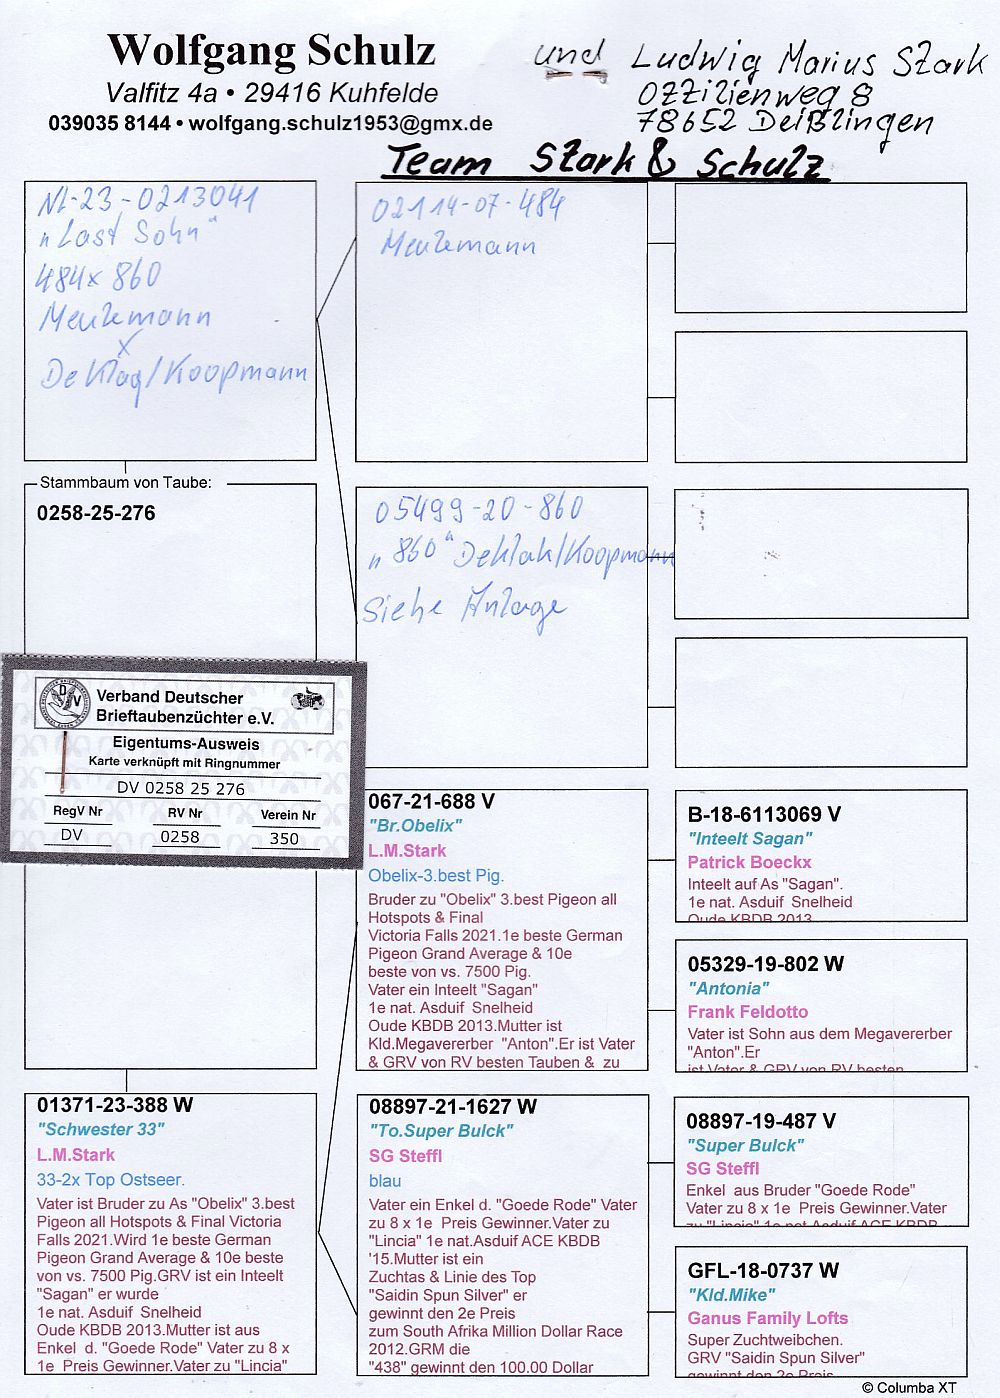 Wolfgang Schulz
Valfitz 4a • 29416 Kuhfelde
039035 8144 • wolfgang.schulz1953@gmx.de
und Ludwig Marius Stark
Ozzilienweg 8
78652 Deißlingen
Team Stark & Schulz
NL-23-0213041
"Last Sohn"
484x860
Meulemann
x
De Klaq/Koopmann
02114-07-484
Meulemann
Stammbaum von Taube:
0258-25-276
05499-20-860
"860" DeKlak/Koopmann
Siehe Anlage
Verband Deutscher
Brieftaubenzüchter e.V.
Eigentums-Ausweis
Karte verknüpft mit Ringnummer
DV 0258 25 276
RegV Nr RV Nr Verein Nr
DV 0258 350
067-21-688 V
"Br.Obelix"
L.M.Stark
Obelix-3.best Pig.
Bruder zu "Obelix" 3.best Pigeon all
Hotspots & Final
Victoria Falls 2021.1e beste German
Pigeon Grand Average & 10e
beste von vs. 7500 Pig.
Vater ein Inteelt "Sagan"
1e nat. Asduif Snelheid
Oude KBDB 2013.Mutter ist
Kld.Megavererber "Anton".Er ist Vater
& GRV von RV besten Tauben & zu
B-18-6113069 V
"Inteelt Sagan"
Patrick Boeckx
Inteelt auf As "Sagan".
1e nat. Asduif Snelheid
Oude KBDB 2013
05329-19-802 W
"Antonia"
Frank Feldotto
Vater ist Sohn aus dem Megavererber
"Anton".Er
ist Vater & GRV von RV besten
01371-23-388 W
"Schwester 33"
L.M.Stark
33-2x Top Ostseer.
Vater ist Bruder zu As "Obelix" 3.best
Pigeon all Hotspots & Final Victoria
Falls 2021.Wird 1e beste German
Pigeon Grand Average & 10e beste
von vs. 7500 Pig.GRV ist ein Inteelt
"Sagan" er wurde
1e nat. Asduif Snelheid
Oude KBDB 2013.Mutter ist aus
Enkel d. "Goede Rode" Vater zu 8 x
1e Preis Gewinner.Vater zu "Lincia"
08897-21-1627 W
"To.Super Bulck"
SG Steffl
blau
Vater ein Enkel d. "Goede Rode" Vater
zu 8 x 1e Preis Gewinner.Vater zu
"Lincia" 1e nat.Asduif ACE KBDB
'15.Mutter ist ein
Zuchtas & Linie des Top
"Saidin Spun Silver" er
gewinnt den 2e Preis
zum South Afrika Million Dollar Race
2012.GRM die
"438" gewinnt den 100.00 Dollar
08897-19-487 V
"Super Bulck"
SG Steffl
Enkel aus Bruder "Goede Rode"
Vater zu 8 x 1e Preis Gewinner.Vater
zu "Lincia" 1e nat.Asduif ACE KBDB
GFL-18-0737 W
"Kld.Mike"
Ganus Family Lofts
Super Zuchtweibchen.
GRV "Saidin Spun Silver"
gewinnt den 2e Preis
© Columba XT